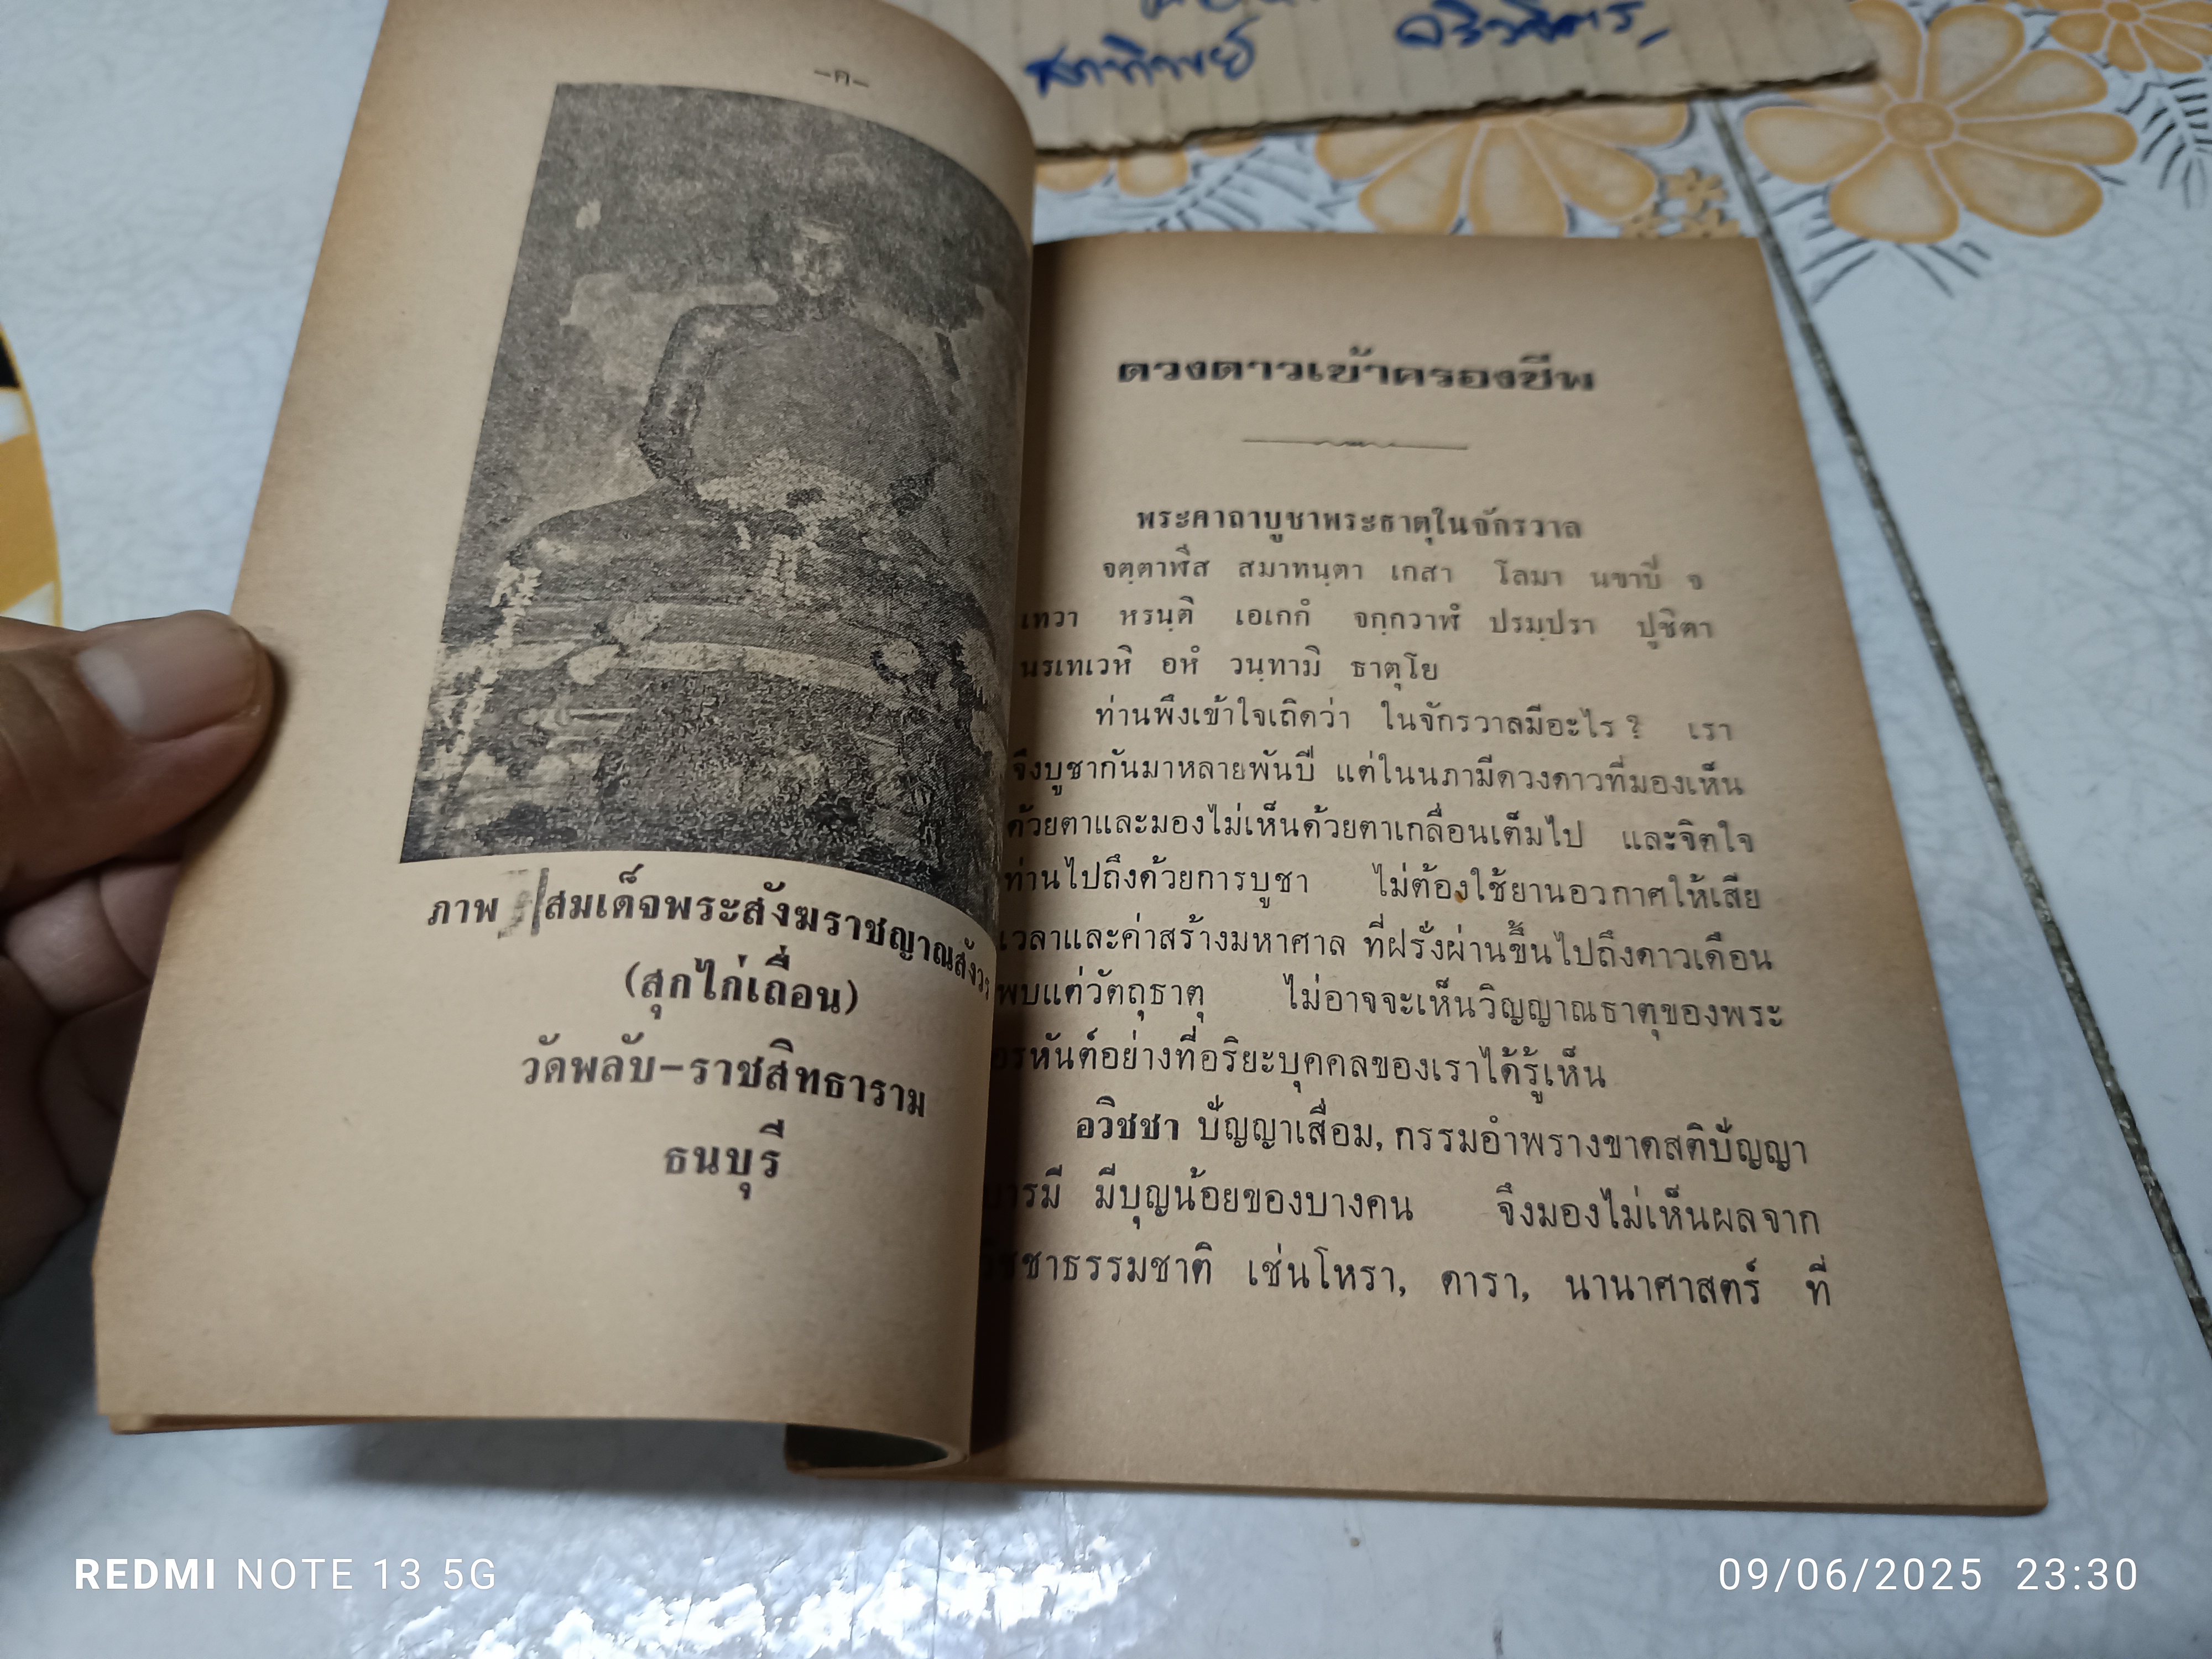 สภาทิพย์ 
-ค-
ภาพ สมเด็จพระสังฆราชญาณสังวร
(สุกไก่เถื่อน)
วัดพลับ-ราชสิทธาราม
ธนบุรี
ดวงดาวเข้าครองชีพ
พระคาถาบูชาพระธาตุในจักรวาล
จตฺตาฬีส สมาทนฺตา เกสา โลมา นขาปี จ
เทวา หรนฺติ เอเกกํ จกฺกวาฬํ ปรมฺปรา ปูชิตา
นรเทเวหิ อหํ วนฺทามิ ธาตุโย
ท่านพึงเข้าใจเถิดว่า ในจักรวาลมีอะไร ? เรา
จึงบูชากันมาหลายพันปี แต่ในนภามีดวงดาวที่มองเห็น
ด้วยตาและมองไม่เห็นด้วยตาเกลื่อนเต็มไป และจิตใจ
ท่านไปถึงด้วยการบูชา ไม่ต้องใช้ยานอวกาศให้เสีย
เวลาและค่าสร้างมหาศาล ที่ฝรั่งผ่านขึ้นไปถึงดาวเดือน
พบแต่วัตถุธาตุ ไม่อาจจะเห็นวิญญาณธาตุของพระ
อรหันต์อย่างที่อริยะบุคคลของเราได้รู้เห็น
อวิชชา ปัญญาเสื่อม, กรรมอำพรางขาดสติปัญญา
บารมี มีบุญน้อยของบางคน จึงมองไม่เห็นผลจาก
วิชชาธรรมชาติ เช่นโหรา, ดารา, นานาศาสตร์ ที่
REDMI NOTE 13 5G
09/06/2025 23:30